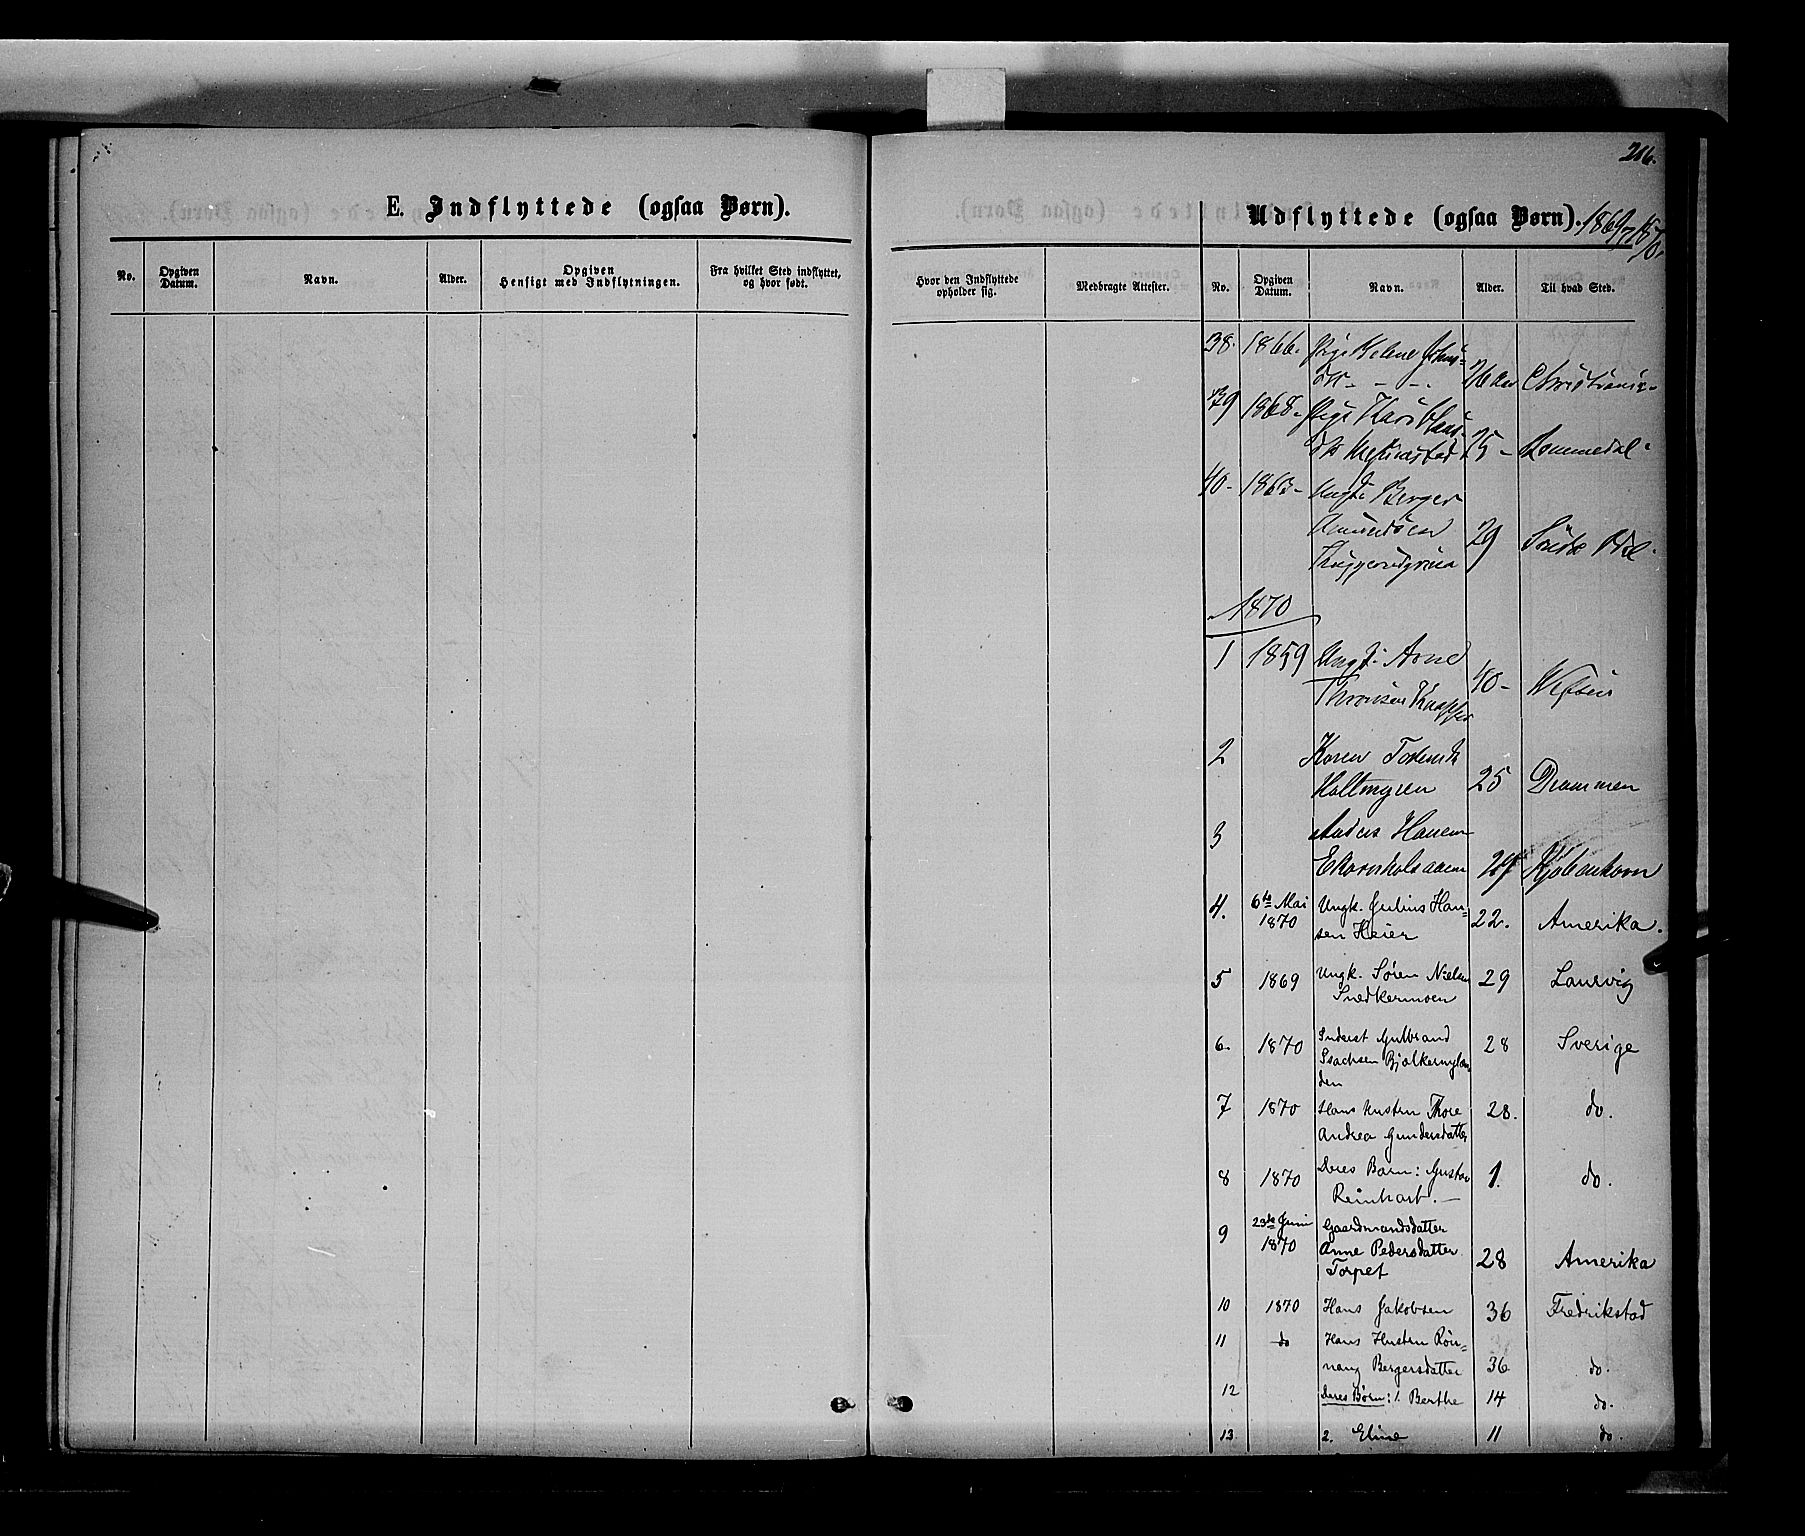 216.
E. Indflyttede (ogsaa Børn).
No.
Opgiven Datum.
Navn.
Alder.
Opgiven Hensigt med Indflytningen.
Fra hvilket Sted indflyttet, og hvor født.
Hvor den Indflyttede opholder sig.
Medbragte Attester.
Udflyttede (ogsaa Børn). 1869, 1870.
No.
Opgiven Datum.
Navn.
Alder.
Til hvad Sted.
38. 1866. Pige
26 Christiania
39 1868. Pige Kari
25 - Rommedal
40 - 1863 - Ungk. Berger
Amundsen 29 Søndre Odal
1870
1 1859 Ungk. Arne
Thronsen 40 -
2 Karen
25 Drammen
3 Anders Hansen
29 Kjøbenhavn
4. 6te Mai 1870 Ungk. Julius Han-
sen Heier 22. Amerika.
5 1869 Ungk. Søren Nielsen 29 Laurvig
Snedkermoen
6. 1870 Inderst Gulbrand 28 Sverige
Isachsen
7 1870 Hans Hustru Thore 28. do.
Andrea Gundersdatter
8 1870 Deres Barn: Gustav 1. do.
Reinhart. -
9 23de Juni 1870 Gaardmandsdatter
Anne Pedersdatter 28 Amerika
Torpet
10 1870 Hans Jakobsen 36 Fredrikstad
11 do Hans Hustru Røn-
naug Bergersdatter 36 do.
12 Deres Børn: 1. Berthe 14 do.
13 2. Eline 11 do.